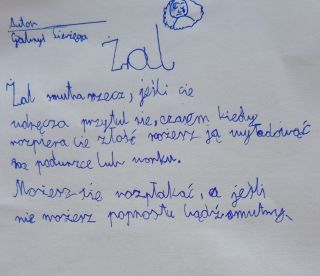 Autor
Żal
Żal mutna rzecz, jeśli cie
udręcza przytul sie, czasem kiedy
rozpiera cie złość możesz ją wyładować
na poduszce lub worku.
Możesz się rozpłakać, a jeśli
nie możesz poprostu bądź smutny.